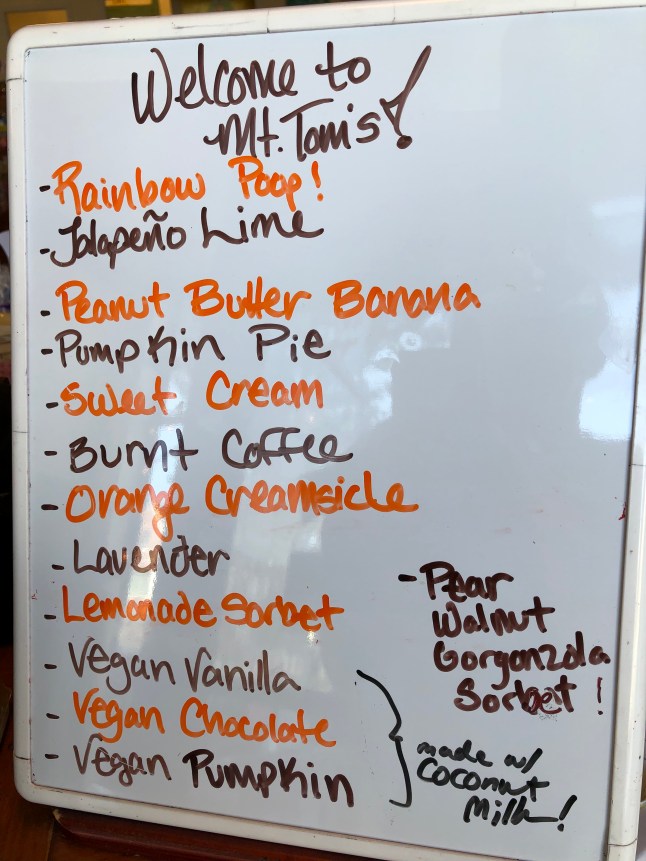 Welcome to
Mt. Tom's!
- Rainbow Poop!
- Jalapeño Lime
- Peanut Butter Banana
- Pumpkin Pie
- Sweet Cream
- Burnt Coffee
- Orange Creamsicle
- Lavender
- Lemonade Sorbet
- Vegan Vanilla
- Vegan Chocolate
- Vegan Pumpkin
made w/
Coconut
Milk!
- Pear
Walnut
Gorgonzola
Sorbet!